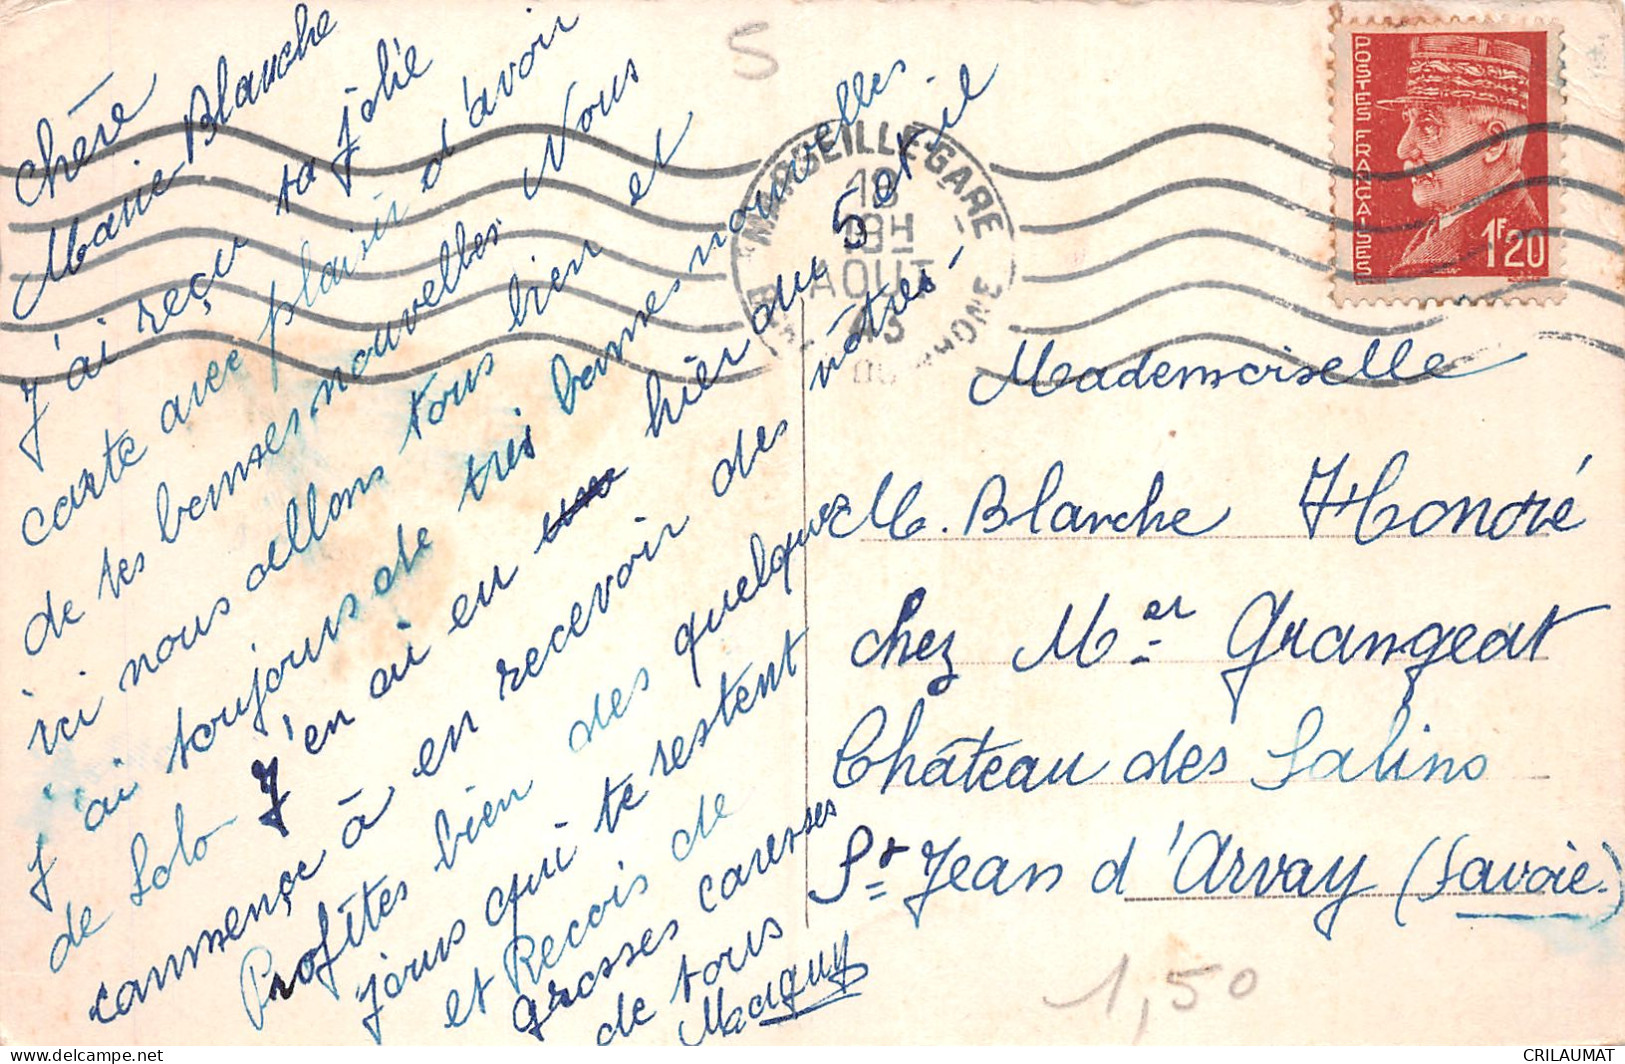 Chère
Marie Blanche
J'ai reçu ta jolie
carte avec plaisir d'avoir
de tes bonnes nouvelles. Nous
ici nous allons tous bien et
J'ai toujours de très bonnes nouvelles
de Lolo J'en ai eu hier du 5 et il
commençe à en recevoir des nôtres-
Profîtes bien des quelques
jours qui te restent
et Recois de
grosses caresses
de tous
Maguy
Mademoiselle
M. Blanche Honoré
chez Mer Grangeat
Château des Salins
St Jean d'Arvay (Savoie)
MARSEILLE-GARE
18
19H
AOUT
43
DU RHONE
POSTES FRANÇAISES
1F20
S
1,50
CRILAUMAT